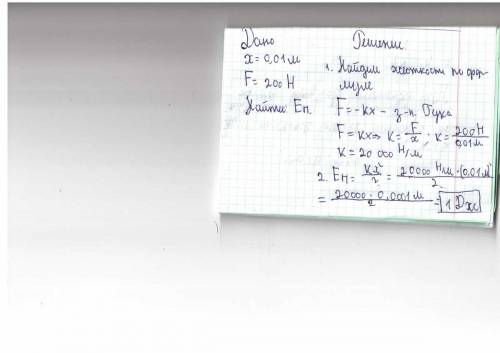 Дано
x = 0,01 м
F = 200 Н
Найти: Eп.
Решение
1. Найдём жесткость по фор-
муле
F = -kx - з-н. Гука
F = kx => k = F/x ; k = 200 Н/0,01 м
k = 20 000 Н/м
2. Eп = kx²/2 = 20000 Н/м · (0,01 м)²/2 =
= 20000 · 0,0001 м/2 = 1 Дж